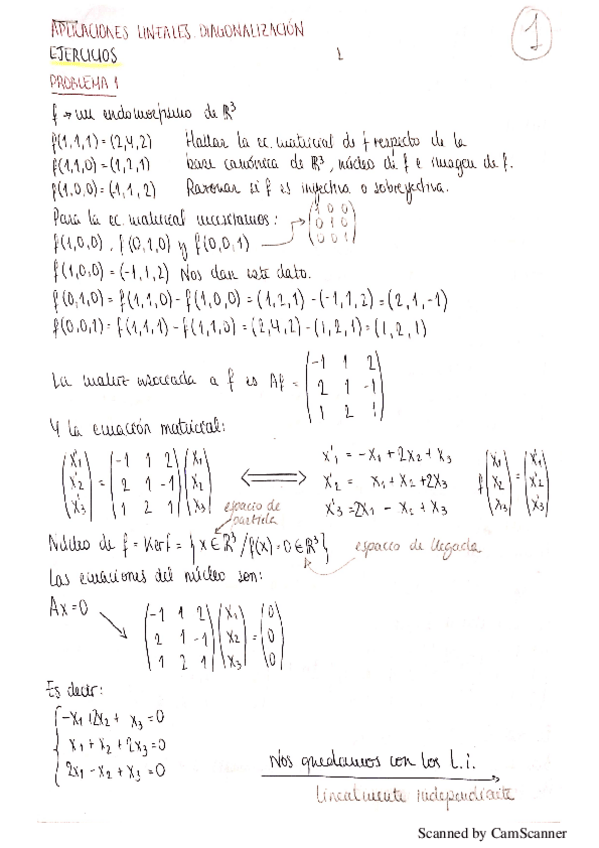 APLICACIONES LINEALES. DIAGONALIZACIÓN
1
EJERCICIOS
1
PROBLEMA 1
f → un endomorfismo de ℝ³
f(1,1,1) = (2,4,2) Hallar la ec. matricial de f respecto de la
f(1,1,0) = (1,2,1) base canónica de ℝ³, núcleo de f e imagen de f.
f(1,0,0) = (1,1,2) Razonar si f es inyectiva o sobreyectiva.
Para la ec. matricial necesitamos:
f(1,0,0), f(0,1,0) y f(0,0,1) → (1 0 0
0 1 0
0 0 1)
f(1,0,0) = (-1,1,2) Nos dan este dato.
f(0,1,0) = f(1,1,0) - f(1,0,0) = (1,2,1) - (-1,1,2) = (2,1,-1)
f(0,0,1) = f(1,1,1) - f(1,1,0) = (2,4,2) - (1,2,1) = (1,2,1)
La matriz asociada a f es Af = (-1 1 2
2 1 -1
1 2 1)
Y la ecuación matricial:
(x'1 = (-1 1 2 (x1 x'1 = -x1 + 2x2 + x3 (x1 (x'1
x'2 2 1 -1 x2 ⟺ x'2 = x1 + x2 + 2x3 f x2 = x'2
x'3) 1 2 1) x3) x'3 = 2x1 - x2 + x3 x3) x'3)
espacio de
partida
Núcleo de f = Kerf = {x ∈ ℝ³ / f(x) = 0 ∈ ℝ³} espacio de llegada
Las ecuaciones del núcleo son:
Ax = 0
(-1 1 2 (x1 (0
2 1 -1 x2 = 0
1 2 1) x3) 0)
Es decir:
-x1 + 2x2 + x3 = 0
x1 + x2 + 2x3 = 0
2x1 - x2 + x3 = 0
Nos quedamos con los L.i.
Linealmente independiente
Scanned by CamScanner